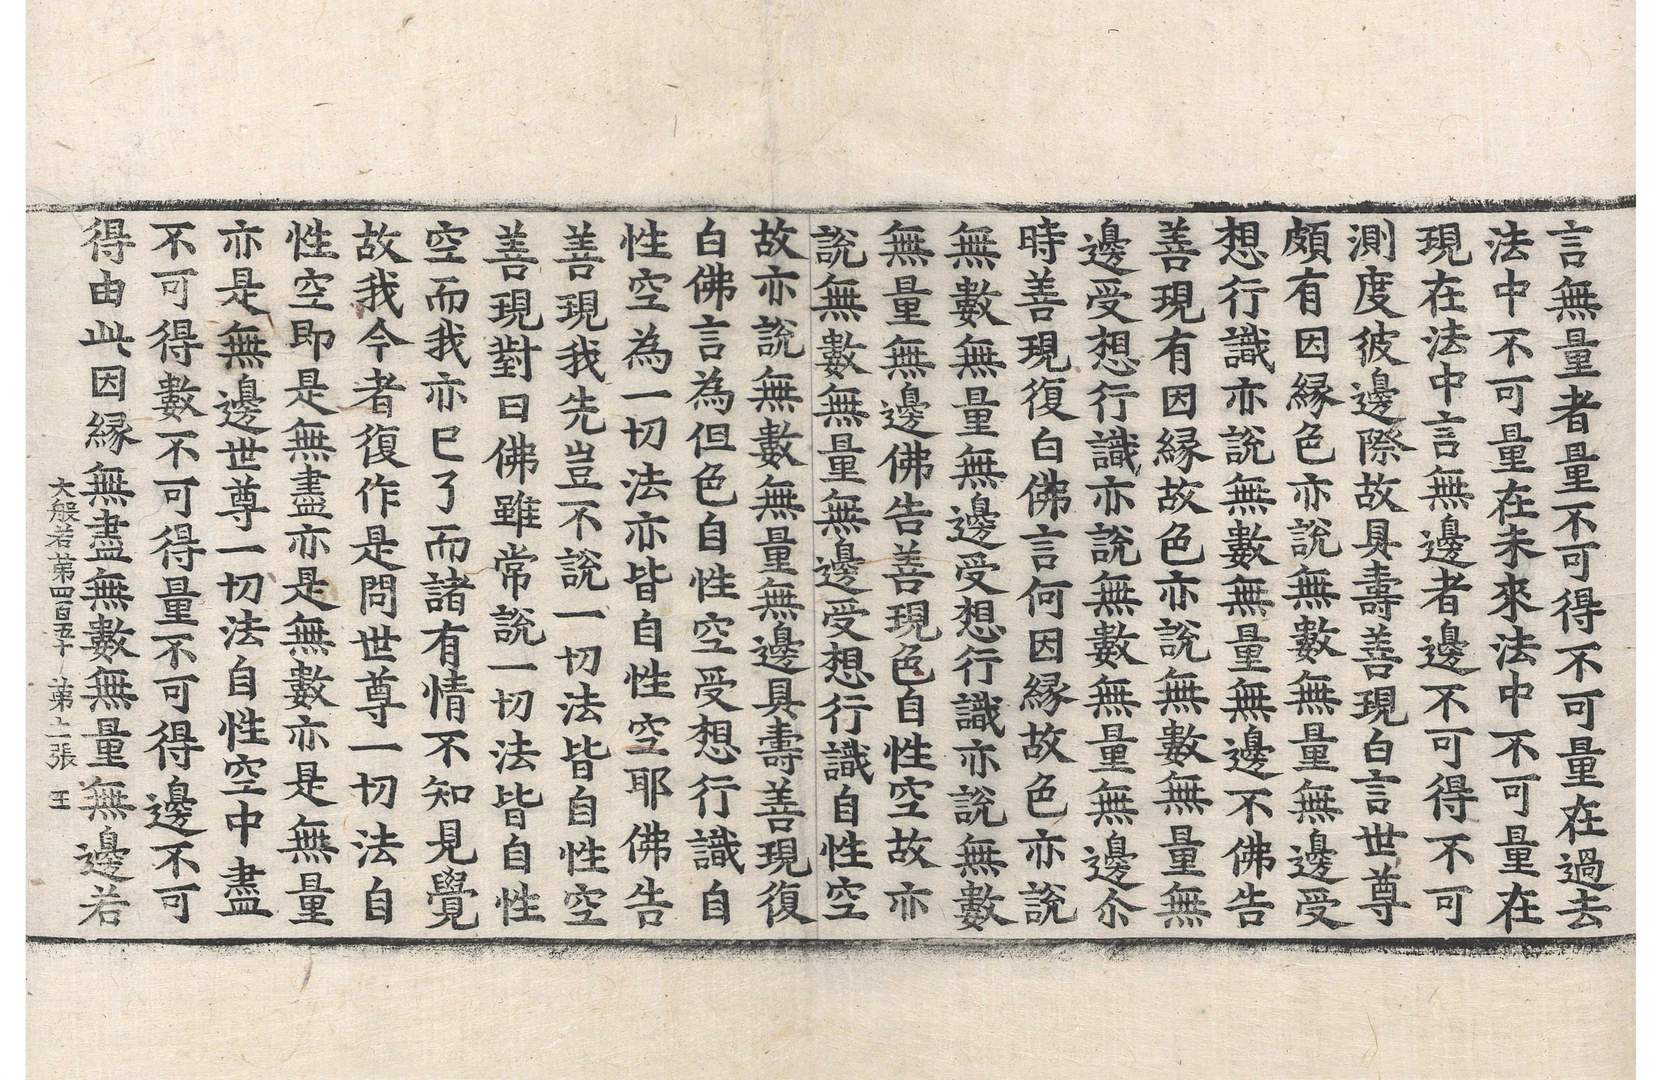 言無量者量不可得不可量在過去
法中不可量在未來法中不可量在
現在法中言無邊者邊不可得不可
測度彼邊際故具壽善現白言世尊
頗有因縁色亦說無數無量無邊受
想行識亦說無數無量無邊不佛告
善現有因縁故色亦說無數無量無
邊受想行識亦說無數無量無邊尒
時善現復白佛言何因縁故色亦說
無數無量無邊受想行識亦說無數
無量無邊佛告善現色自性空故亦
說無數無量無邊受想行識自性空
故亦說無數無量無邊具壽善現復
白佛言為但色自性空受想行識自
性空為一切法亦皆自性空耶佛告
善現我先豈不說一切法皆自性空
善現對曰佛雖常說一切法皆自性
空而我亦已了而諸有情不知見覺
故我今者復作是問世尊一切法自
性空即是無盡亦是無數亦是無量
亦是無邊世尊一切法自性空中盡
不可得數不可得量不可得邊不可
得由此因縁無盡無數無量無邊若
大般若第四百五十 第 張